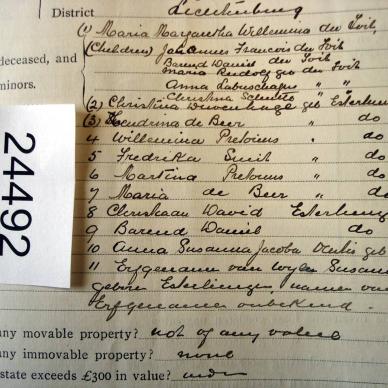 District Lichtenburg
(1) Maria Margaretha Willemina du Toit,
deceased, and
(Children) Johannes Francois du Toit
Barend Daniel du Toit
minors.
Maria du Toit
Anna Labuschagne " "
Christina
(2) Christina geb
(3) Hendrina de Beer " do
4 Willemina Pretorius . do
5 Fredrika Smit " do
6 Martina Pretorius " do
7 Maria de Beer " do
8 Christiaan David
9 Barend Daniel do
10 Anna Susanna Jacoba geb
11 Erfgenamen van wylen Susanna
geboren namen van
Erfgenamen onbekend.
24492
any movable property? not of any value
any immovable property? none
state exceeds £300 in value?